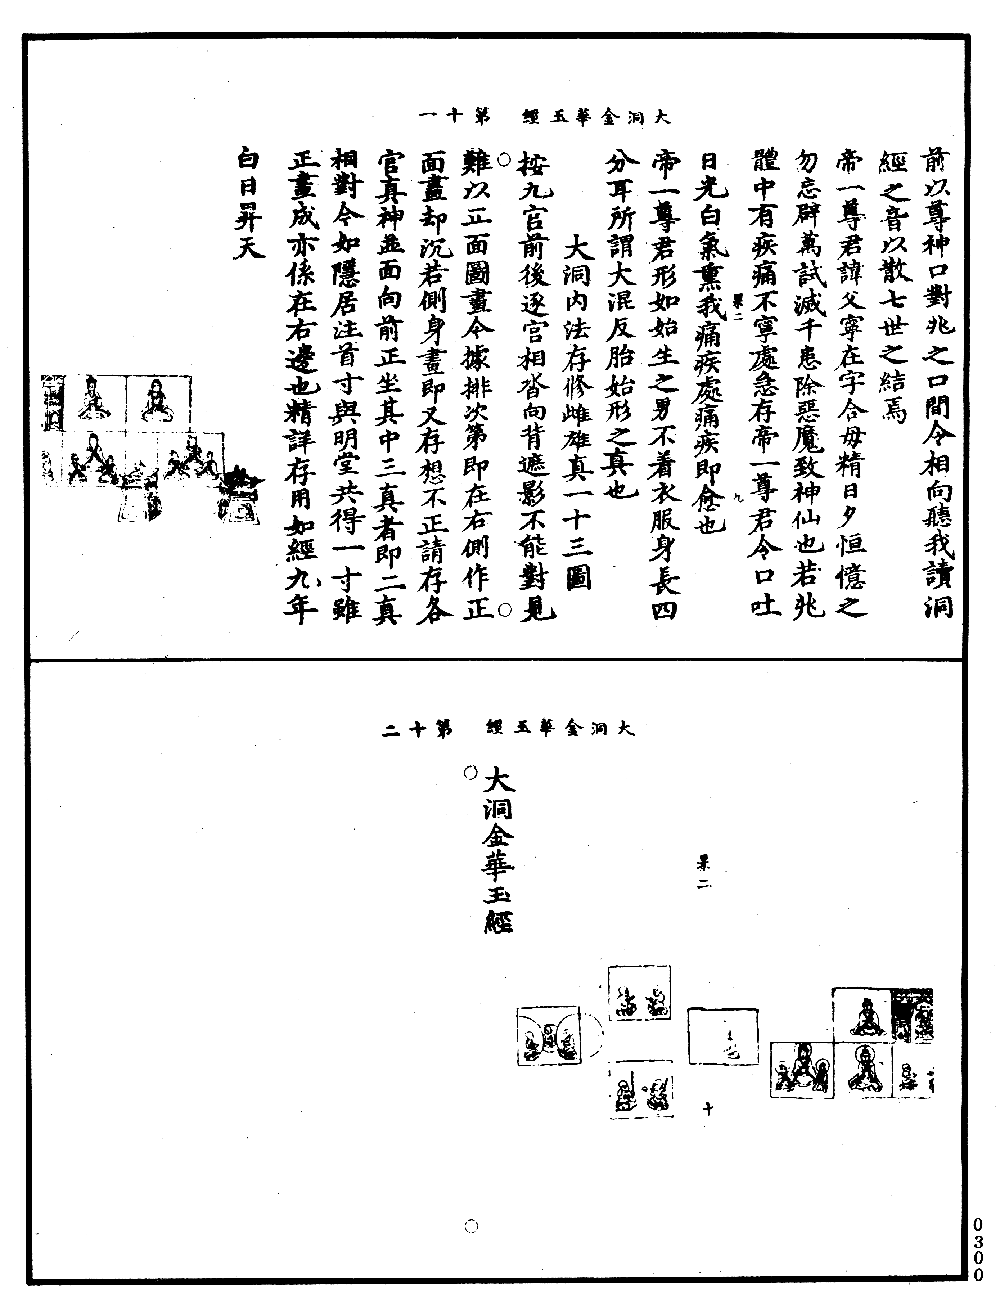 大洞金華玉經　第十一
前以尊神口對兆之口間令相向聽我讀洞
經之音以散七世之結焉
帝一尊君諱父寧在字合母精日夕恒憶之
勿忘辟萬試滅千患除惡魔致神仙也若兆
體中有疾痛不寧處急存帝一尊君令口吐
日光白氣熏我痛疾處痛疾即愈也
果二
九
帝一尊君形如始生之男不着衣服身長四
分耳所謂大混反胎始形之真也
大洞內法存修雌雄真一十三圖
按九宮前後逐宮相沓向背遮影不能對見
難以正面圖畫今據排次第即在右側作正
面畫却沉若側身畫即又存想不正請存各
官真神並面向前正坐其中三真者即二真
相對今如隱居注首寸與明堂共得一寸雖
正畫成亦係在右邊也精詳存用如經九年
白日昇天
大洞金華玉經　第十二
果二
十
大洞金華玉經
0300